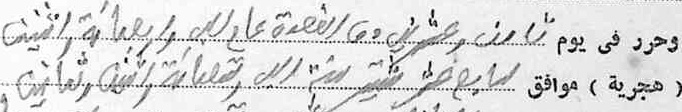 وحرر فى يوم ثامن وعشرين ذى القعدة عام الف واربعمائة واثنين
( هجرية ) موافق سابع عشر سنة الف وتسعمائة واثنين وثمانين